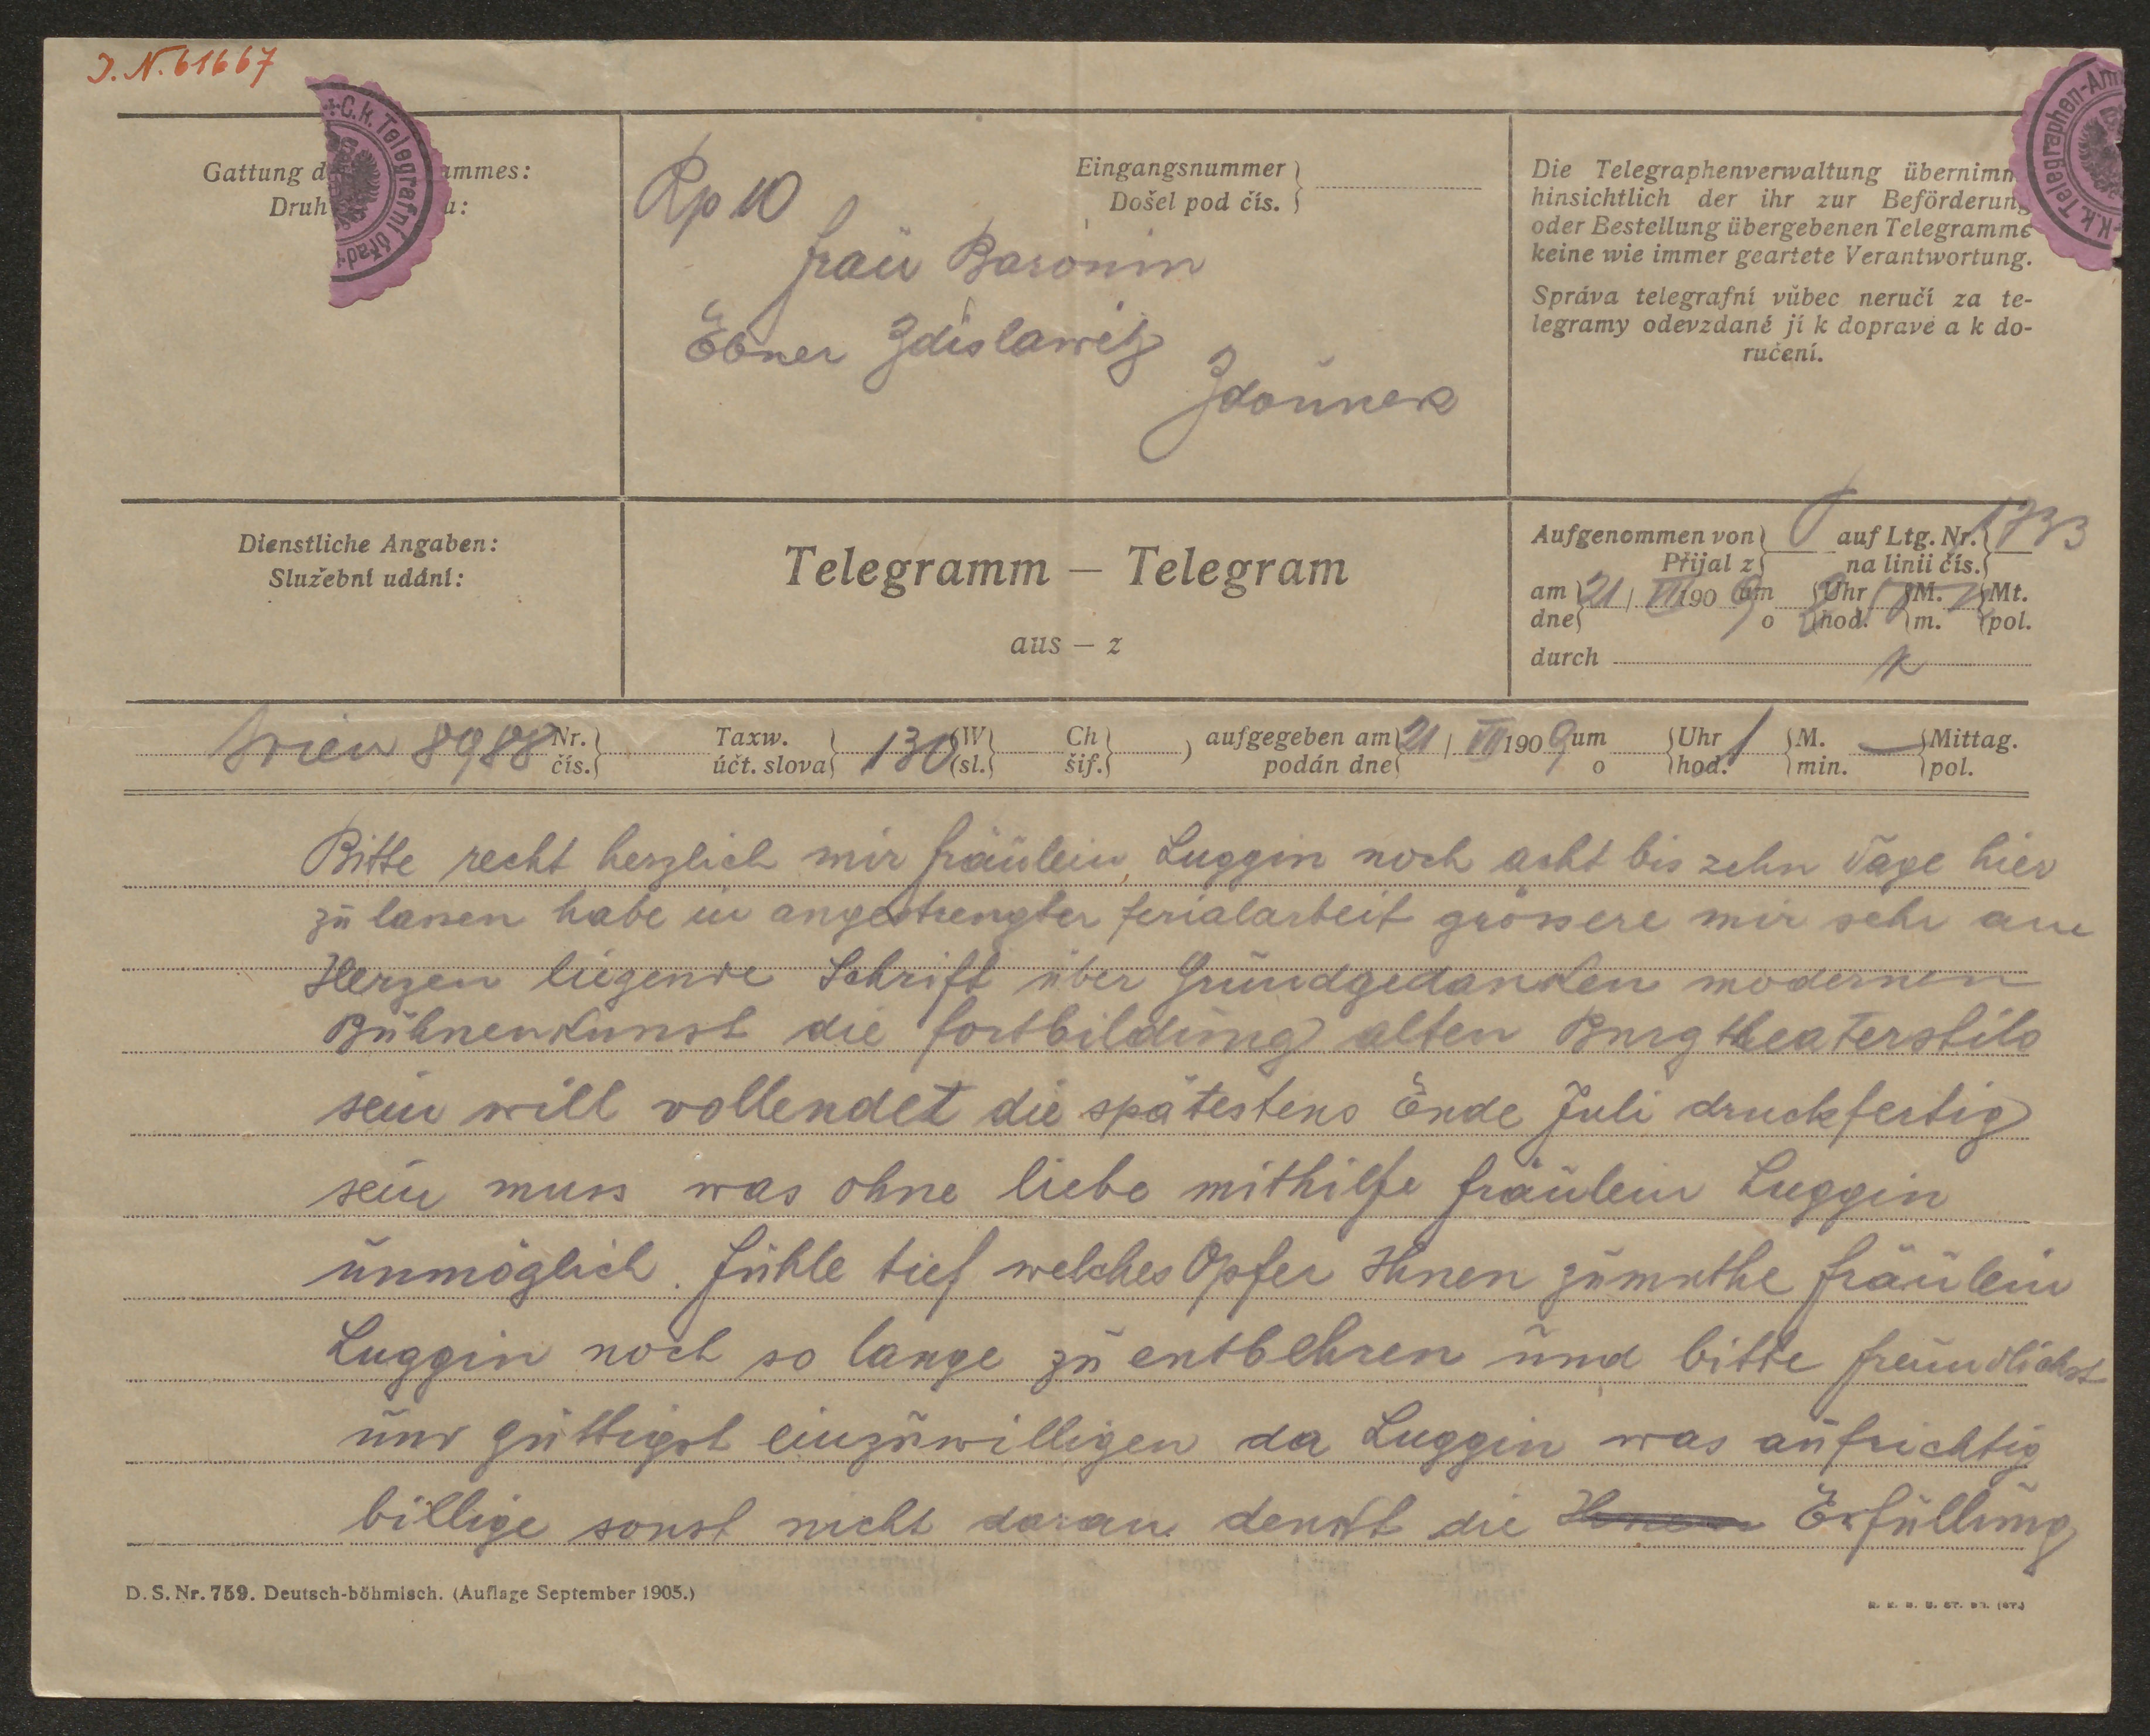 J. N. 61667
C. k. Telegrafní úřad
K. k. Telegraphen-Am
Gattung d ammes:
Druh u:
Rp 10
Eingangsnummer
Došel pod čís.
Frau Baronin
Ebner Zdislawitz
Zdounek
Die Telegraphenverwaltung übernimm
hinsichtlich der ihr zur Beförderung
oder Bestellung übergebenen Telegramme
keine wie immer geartete Verantwortung.
Správa telegrafní vůbec neručí za te-
legramy odevzdané jí k dopravě a k do-
ručení.
Dienstliche Angaben:
Služební udání:
Telegramm — Telegram
aus — z
Aufgenommen von auf Ltg. Nr. 1733
Přijal z na linii čís.
am 21 / VII 190 9 um Uhr M. Mt.
dne o hod. m. pol.
durch
Wien 8988 Nr. Taxw. 130 W Ch aufgegeben am 21 / VII 190 9 um Uhr 1 M. — Mittag.
čís. účt. slova sl. šif. podán dne o hod. min. pol.
Bitte recht herzlich mir Fräulein Luggin noch acht bis zehn Tage hier
zu lassen habe in angestrengter ferialarbeit grössere mir sehr am
Herzen liegende Schrift über Grundgedanken modernen
Bühnenkunst die fortbildung alten Burgtheaterstils
sein will vollendet die spätestens Ende Juli druckfertig
sein muss was ohne liebe mithilfe Fräulein Luggin
unmöglich. Fühle tief welches Opfer Ihnen zumuthe Fräulein
Luggin noch so lange zu entbehren und bitte freundlichst
und güttigst einzuwilligen da Luggin was aufrichtig
billige sonst nicht daran denkt die Erfüllung
D. S. Nr. 759. Deutsch-böhmisch. (Auflage September 1905.)